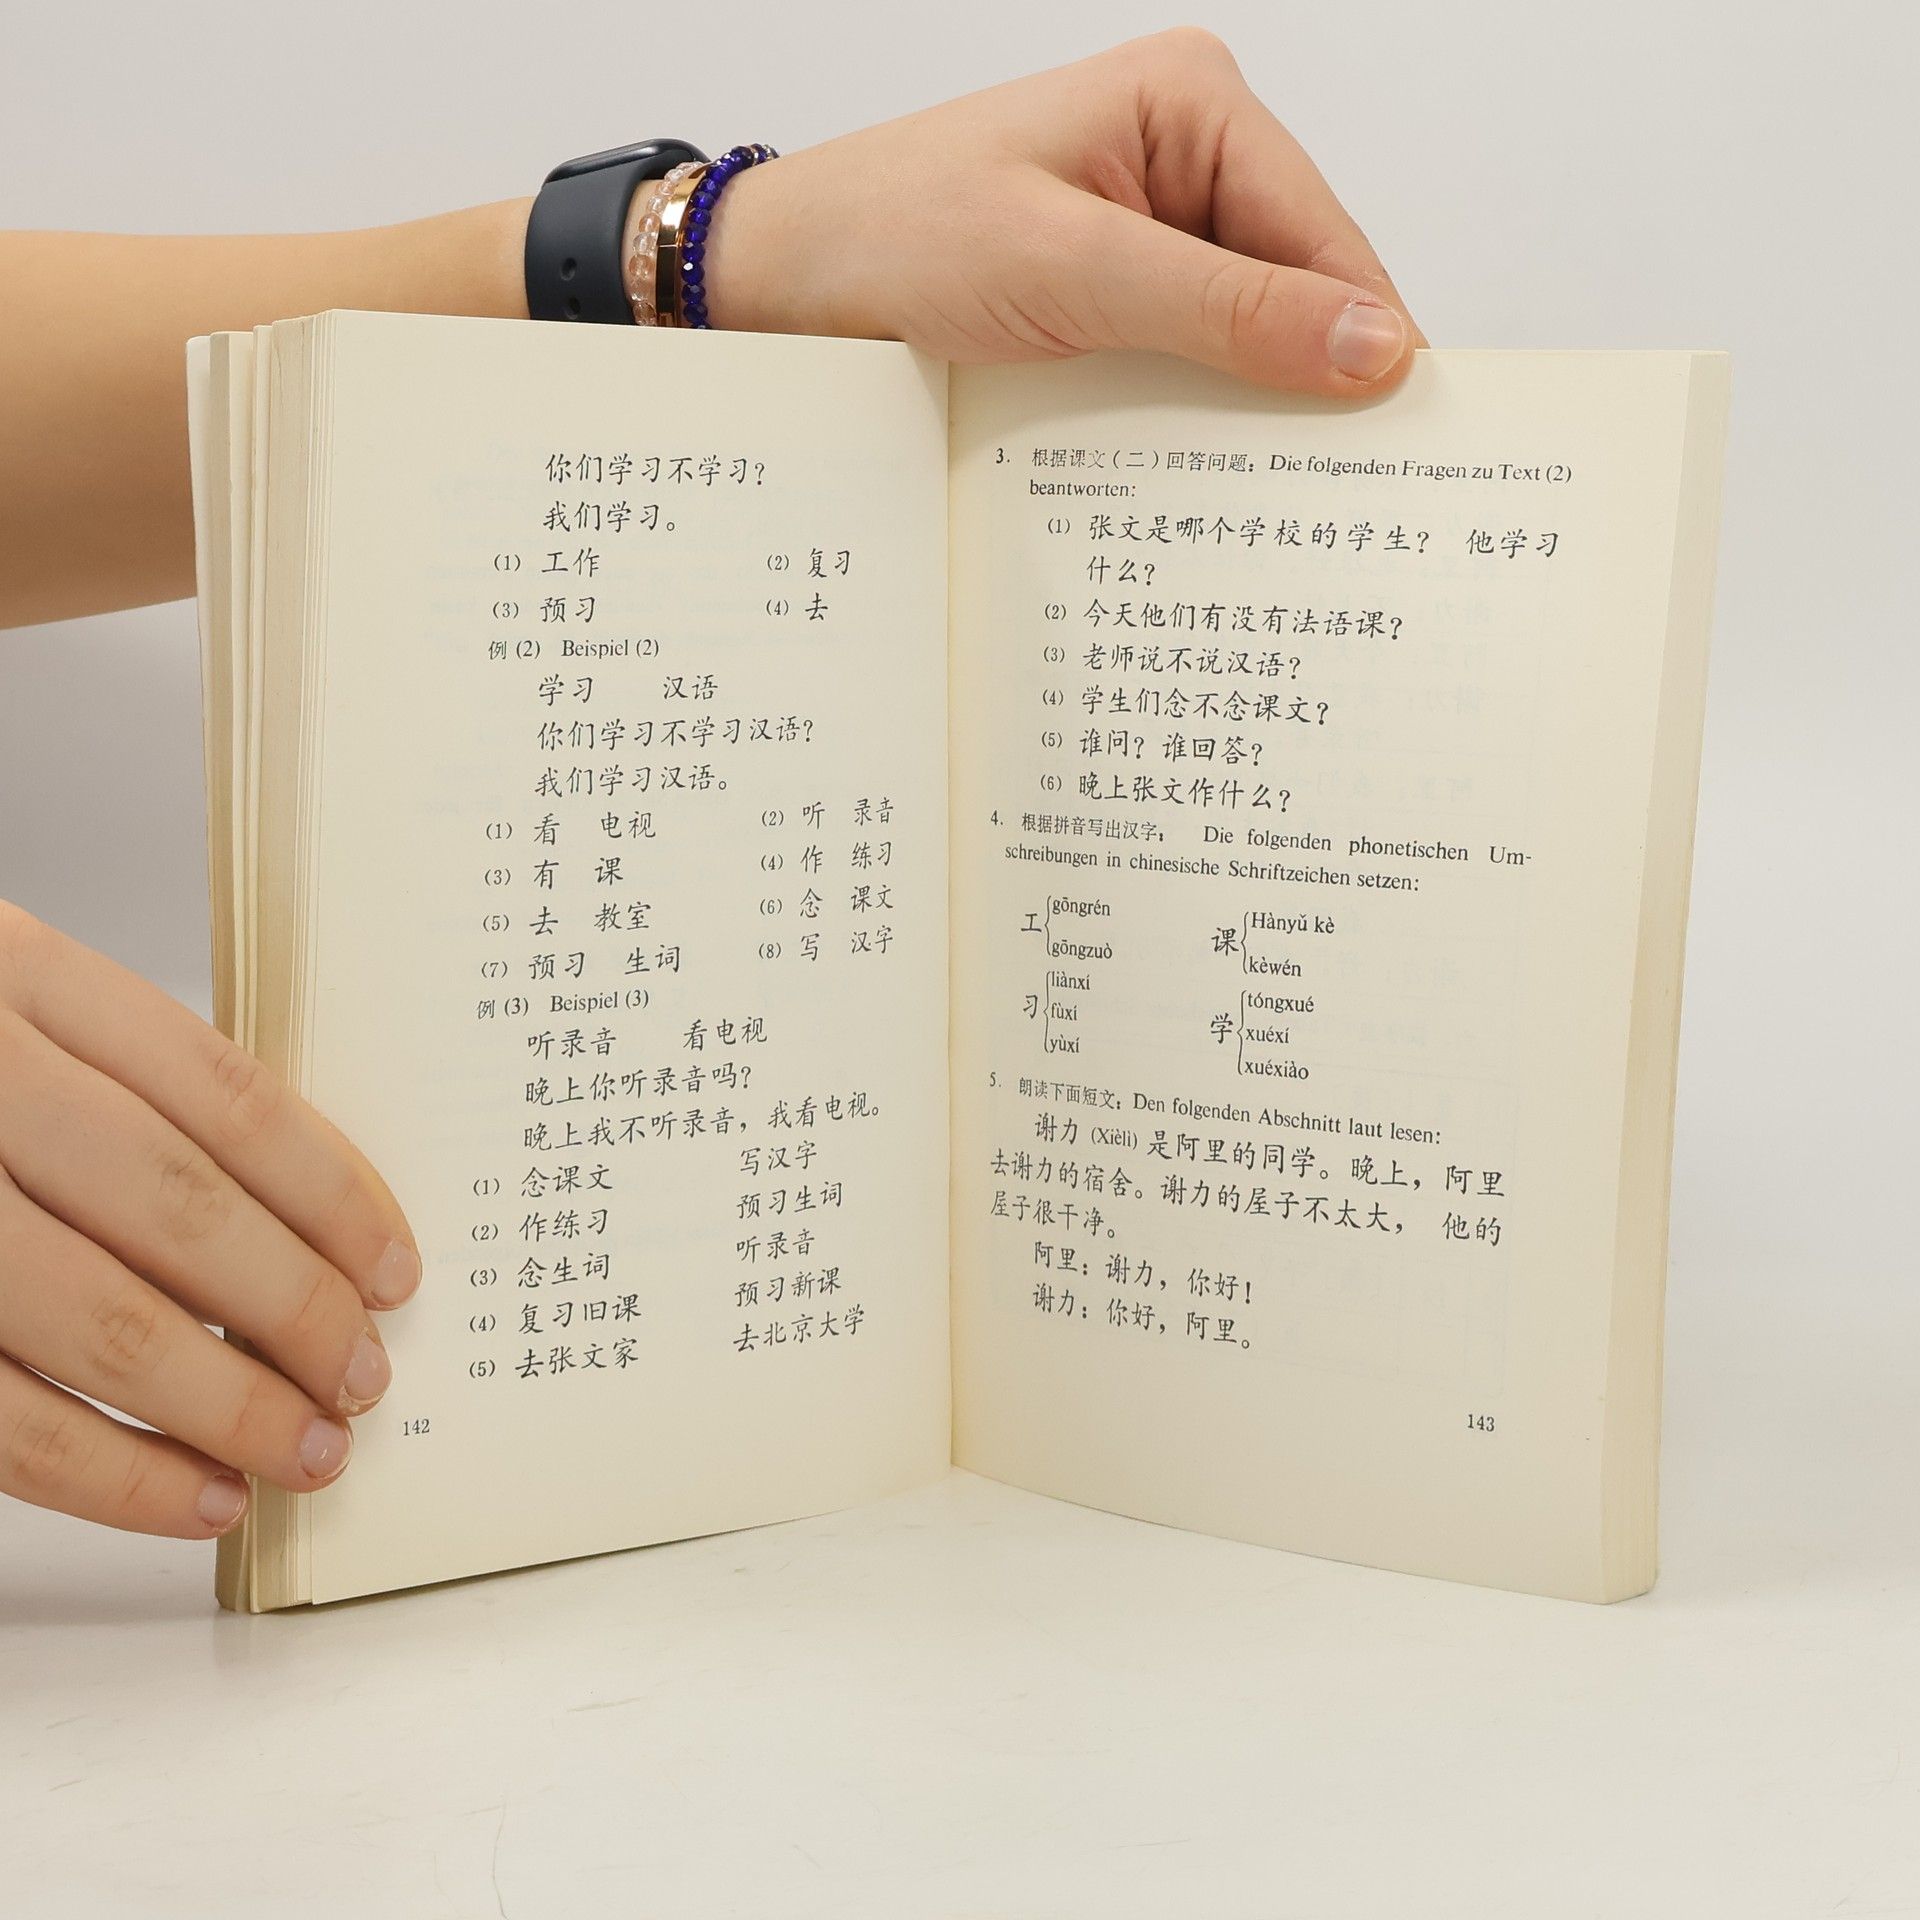 你们学习不学习?
我们学习。
(1) 工作 (2) 复习
(3) 预习 (4) 去
例 (2) Beispiel (2)
学习 汉语
你们学习不学习汉语?
我们学习汉语。
(1) 看 电视 (2) 听 录音
(3) 有 课 (4) 作 练习
(5) 去 教室 (6) 念 课文
(7) 预习 生词 (8) 写 汉字
例 (3) Beispiel (3)
听录音 看电视
晚上你听录音吗?
晚上我不听录音，我看电视。
(1) 念课文 写汉字
(2) 作练习 预习生词
(3) 念生词 听录音
(4) 复习旧课 预习新课
(5) 去张文家 去北京大学
142
3. 根据课文(二)回答问题: Die folgenden Fragen zu Text (2)
beantworten:
(1) 张文是哪个学校的学生? 他学习
什么?
(2) 今天他们有没有法语课?
(3) 老师说不说汉语?
(4) 学生们念不念课文?
(5) 谁问? 谁回答?
(6) 晚上张文作什么?
4. 根据拼音写出汉字: Die folgenden phonetischen Um-
schreibungen in chinesische Schriftzeichen setzen:
工 { gōngrén gōngzuò 课 { Hànyǔ kè kèwén
习 { liànxí fùxí yùxí 学 { tóngxué xuéxí xuéxiào
5. 朗读下面短文: Den folgenden Abschnitt laut lesen:
谢力 (Xièlì) 是阿里的同学。晚上，阿里
去谢力的宿舍。谢力的屋子不太大， 他的
屋子很干净。
阿里: 谢力，你好!
谢力: 你好，阿里。
143